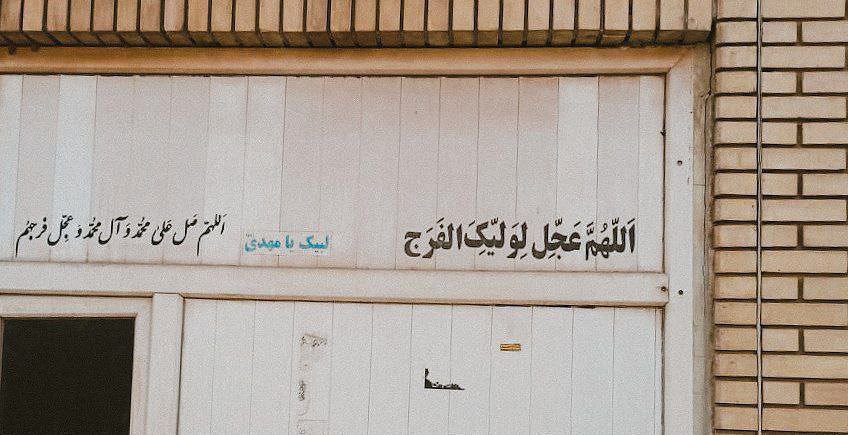 اَللّهُمَّ عَجِّل لِوَلیِّکَ الفَرَج
لبیک یا مهدی
اَللهمّ صَل عَلی محمّد وَ آل محمّد وَ عجّل فرجهُم